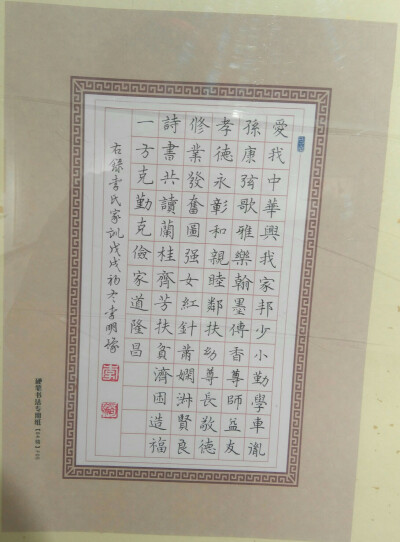 愛我中華興我家邦少小勤學車胤
孫康弦歌雅樂翰墨傳香尊師益友
孝德永彰和親睦鄰扶幼尊長敬德
修業發奮圖强女紅針黹嫻淑賢良
詩書共讀蘭桂齊芳扶貧濟困造福
一方克勤克儉家道隆昌
右錄李氏家訓戊戌初冬李明
硬笔书法专用纸